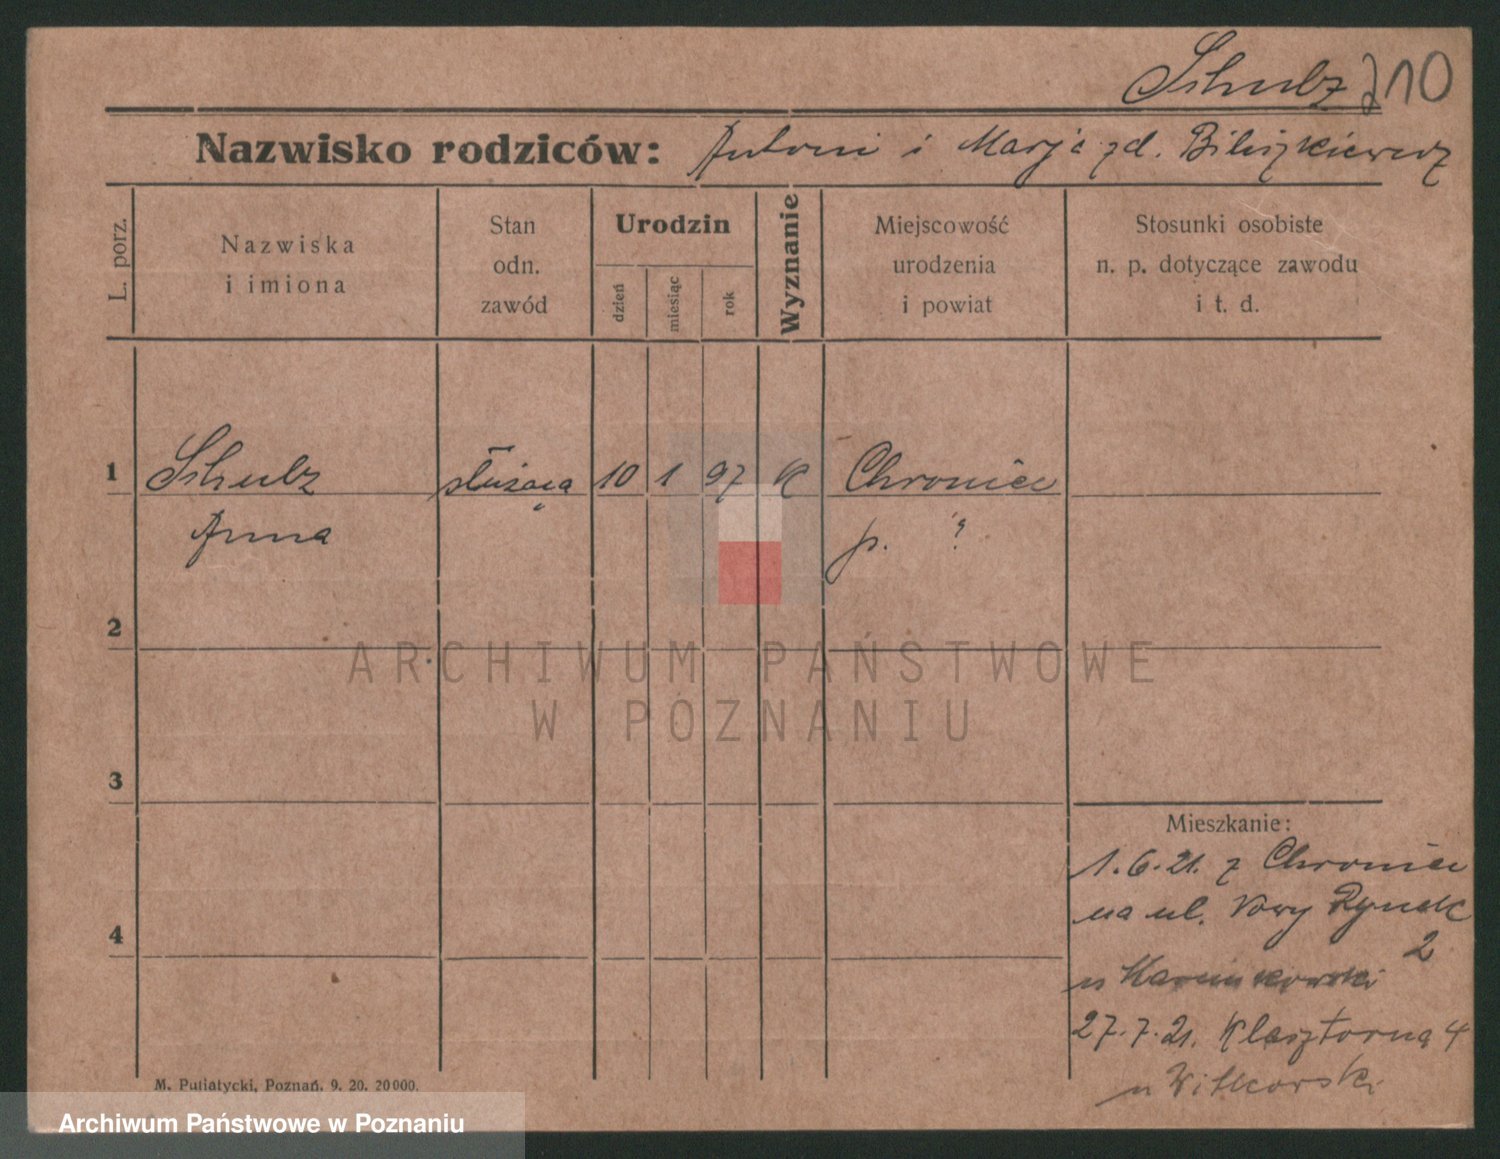 Schulz 210
Nazwisko rodziców: Antoni i Marja zd.
L. porz.
Nazwiska
i imiona
Stan
odn.
zawód
Urodzin
dzień
miesiąc
rok
Wyznanie
Miejscowość
urodzenia
i powiat
Stosunki osobiste
n. p. dotyczące zawodu
i t. d.
1 Schulz służąca 10 1 97 K Chronice
Anna p. ?
2
ARCHIWUM PAŃSTWOWE
W POZNANIU
3
Mieszkanie:
1.6.21. z Chronice
na ul. Nowy Rynek
4
2
u
27.7.21. Klasztorną 4
u Witkowski
M. Putiatycki, Poznań. 9. 20. 20000.
Archiwum Państwowe w Poznaniu